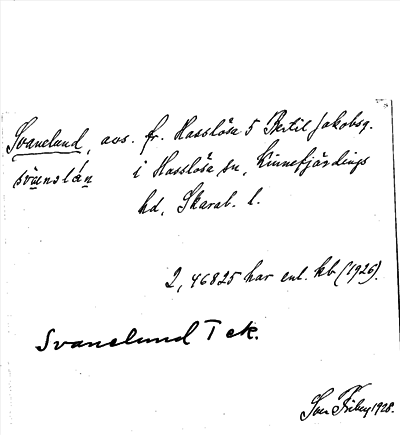 Svanelund, avs. fr. Hasslösa 5 Bertil Jakobsg.
i Hasslösa sn, Kinnefjärdings
hd, Skarab. l.
2,46825 har enl. kb (1926).
Svanelund 1 ek.
1928.